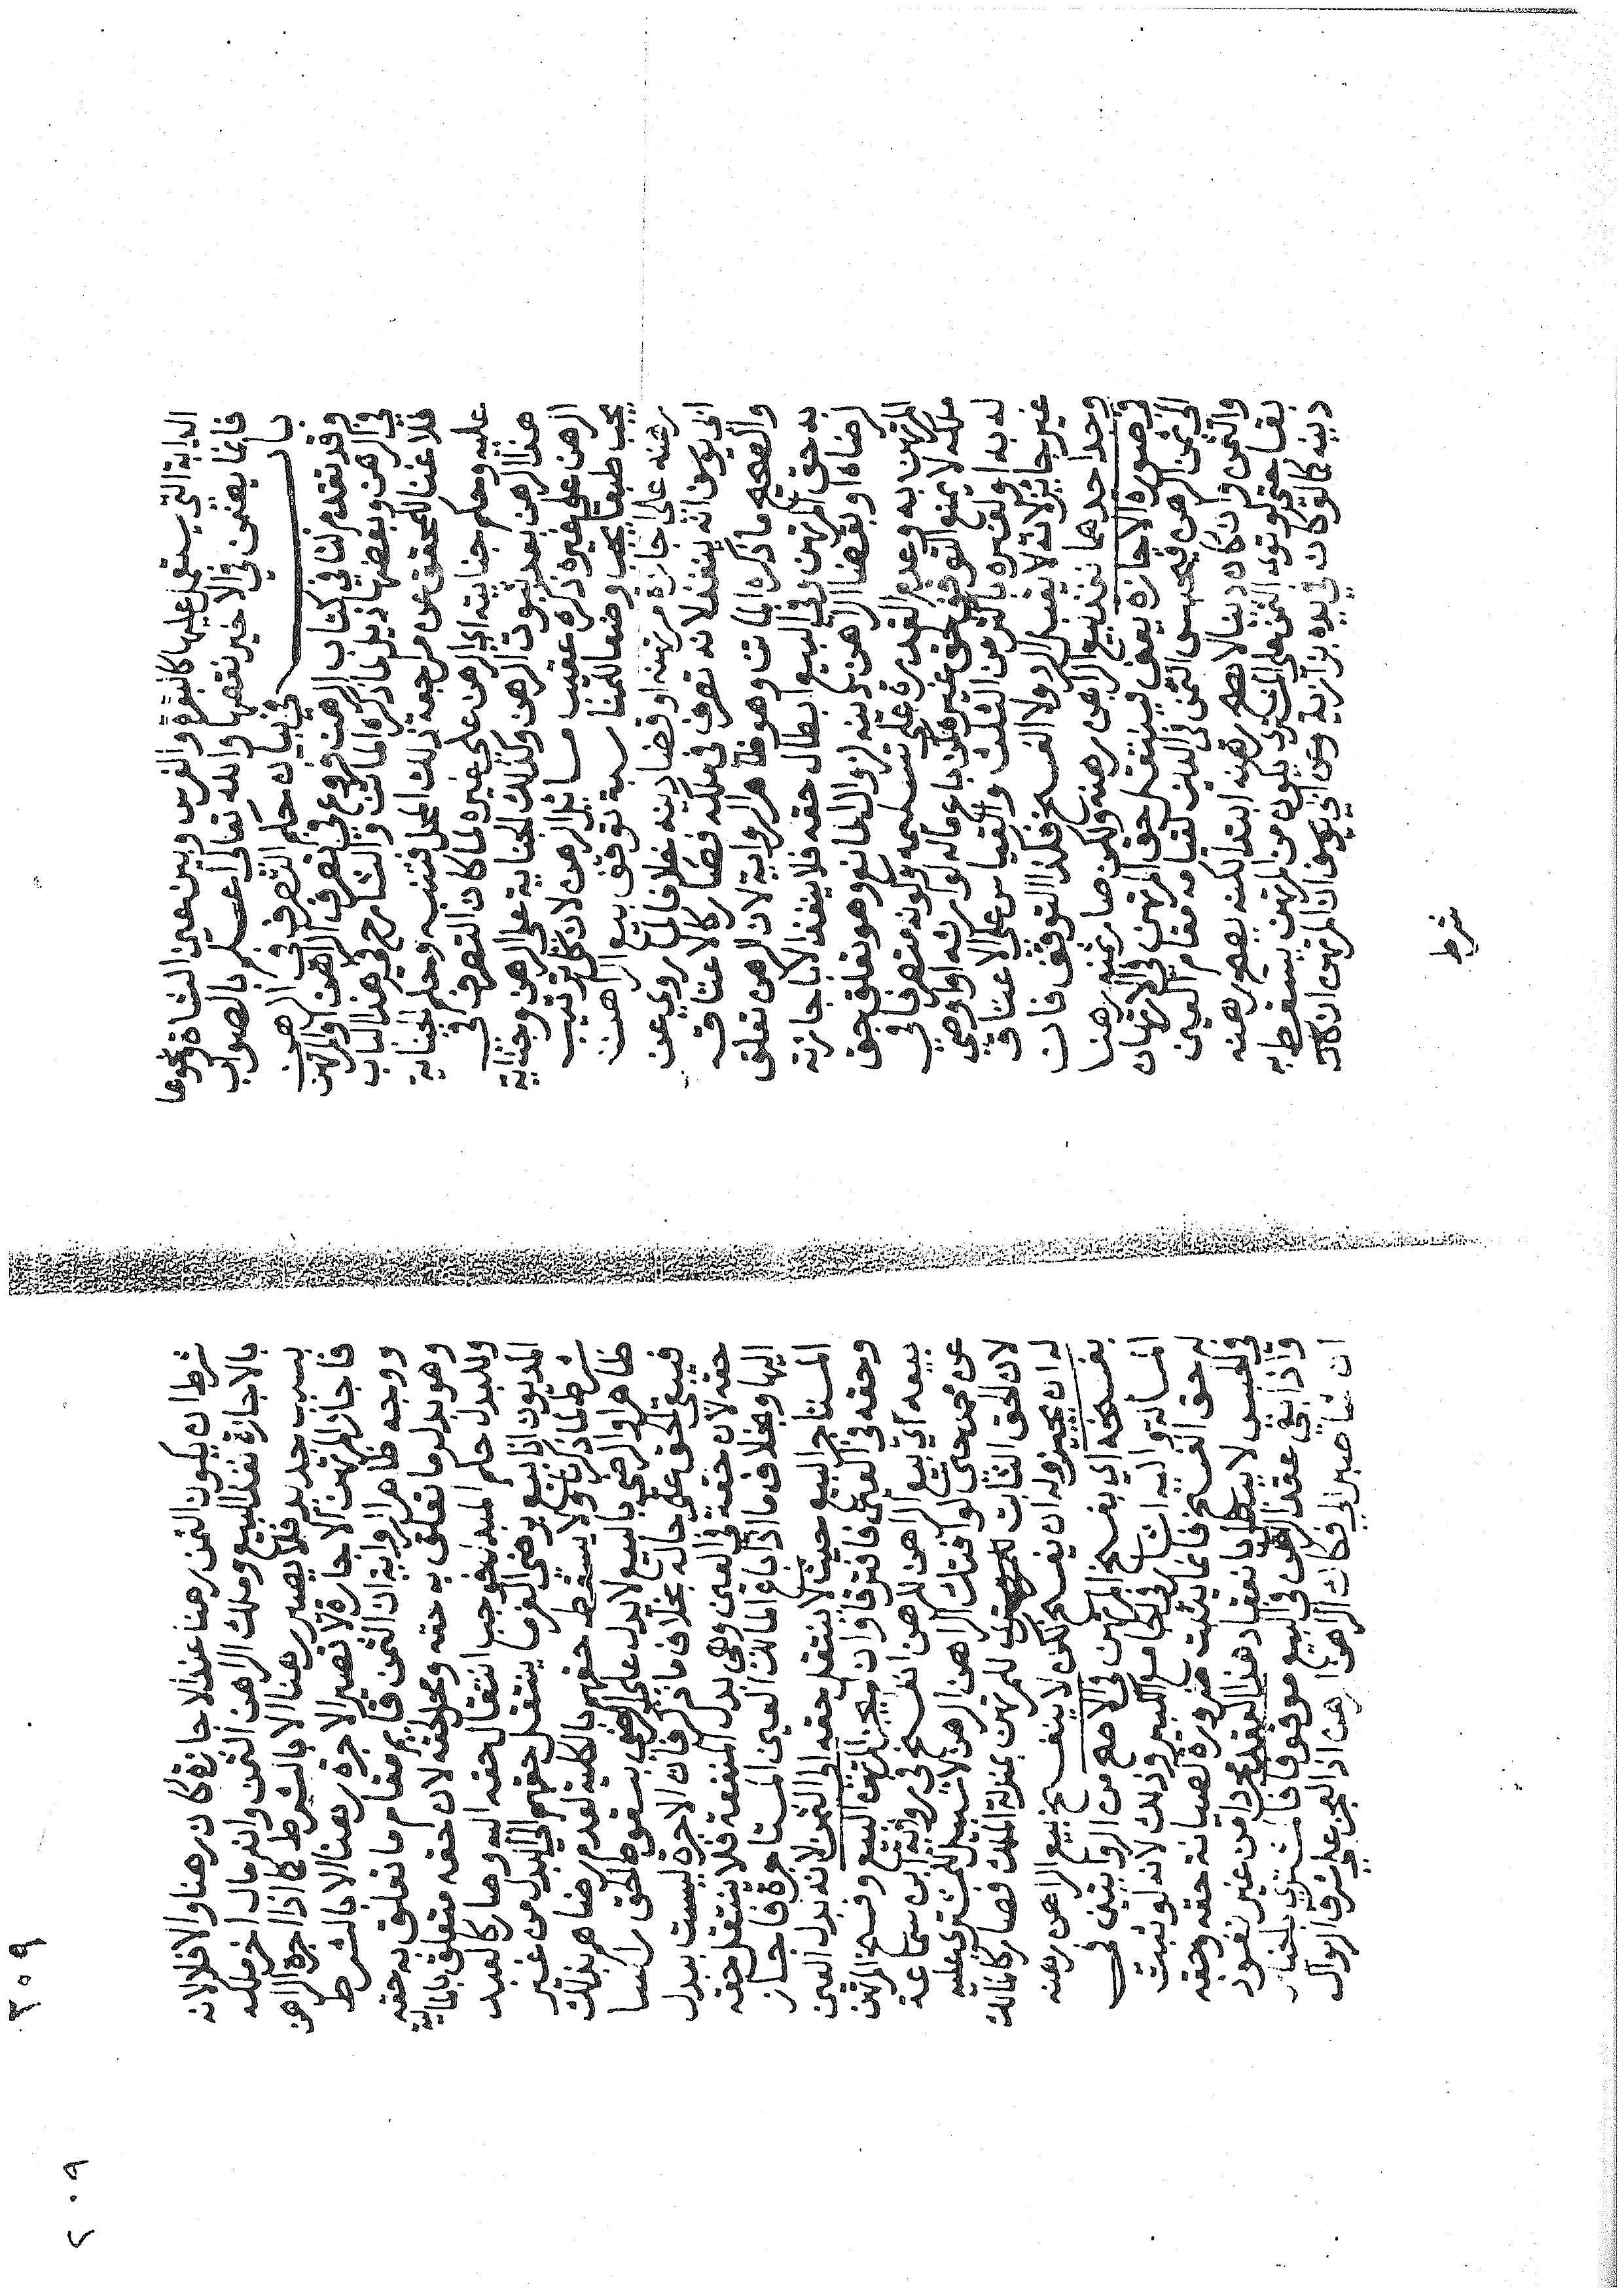 الدابة التي يستقى عليها كالبقرة والفرس وبين عين الشاة ونحوها
فانما يفتى في الاخير نقضها والله تعالى اعلم بالصواب
باب في بيان حكم التصرف في الرهن
وقد تقدم لنا في كتاب الرهن فروع في تصرف الراهن او المرتهن
في الرهن وبعضها نذيل ما ذكره الماتن والشارح في هذا الباب
فلا غنا للمحقق عن مراجعة ذلك المحل فتنبه وحكم الجناية
عليه وحكم جنايته اي الرهن على غيره لما كان التصرف في
هذا الرهن بعد ثبوت الرهن وكذلك الجناية على الرهن وجناية
الرهن على غيره ذكره عقيب مسائل الرهن لان كل ترتيب
يجب طبعا يجب وضعا للمناسبة توقف بيع الراهن
رهنه على اجازة مرتهنه او قضا دينه خلافا لما روي عن
ابي يوسف انه ينفذ لانه تصرف في ملكه فصار كالاعتاق
والصحيح ما ذكره الماتن وهو ظاهر الرواية لان الرهن تعلق
به حق المرتهن وفي البيع ابطال حقه فلا ينفذ الا باجازته
رضاه او بقضا الراهن دينه لزوال المانع وهو تعلق حق
المرتهن به وعدم القدرة على تسليمه وكونه متصرفا في
ملكه لا يمنع التوقف لحق غيره كمن باع ماله لوارثه او اوصى
له به او لغيره باكثر من الثلث والقياس على الاعتاق
غير جائز لانه لا يقبل الرد ولا الفسخ فكذا التوقف فان
وجد احدهما نفذ بيع الراهن رهنه ولكن صار ثمنه رهنا
في صورة الاجازة يعني ينتقل حق المرتهن في الارتهان
الى ثمن الرهن فيحبس الثمن في الدين لقيامه مقام العين
والثمن وان كان دينا لا يصح رهنه ابتدا لكنه يصح رهنه
بقا حتى لو توى الثمن على المشتري يكون من المرتهن يسقط به
دينه كما لو كان في يده بزازية وعن ابي يوسف ان المرتهن ان كان
شرط
شرط ان يكون الثمن رهنا عند الاجازة كان رهنا والا فلا لانه
بالاجازة نفذ البيع وملك الراهن الثمن وانه مال اخر ملكه
بسبب جديد فلا يصير رهنا الا بالشرط كما اذا اجره الراهن
فاجاز المرتهن الاجارة لا تصير الاجرة رهنا الا بالشرط
ووجه ظاهر الرواية ان الثمن قايم مقام ما تعلق به حقه
وهو بدل ما تعلق به حقه ومحل حقه لان حقه متعلق بالمالية
وللبدل حكم المبدل فوجب انتقال حقه اليه وصار كالعبد
المديون اذا بيع برضى الغرما ينتقل حقهم الى البدل من غير
شرط لما ذكرنا ولا يسقط حقهم بالكلية لعدم رضاهم بذلك
ظاهرا والرضى بالبيع لا يدل على الرضى بسقوط الحق راسا
فيبقى الحق على حاله بخلاف ما ذكر فان الاجرة ليست ببدل
حقه لان حقه في العين وهي بدل المنفعة فلا ينتقل حقه
اليها وبخلاف ما اذا باع المالك العين المستاجرة فاجاز
المستاجر البيع حيث لا ينتقل حقه الى الثمن لانه بدل العين
وحقه في العين فافترقا وان لم يجز المرتهن البيع وفسخ المرتهن
بيعه اي بيع الراهن للرهن انفسخ في رواية ابن سماعة
عن محمد حتى لو افتك الراهن الرهن لا سبيل للمشتري عليه
لان الحق الثابت للمرتهن بمنزلة الملك فصار كالمالك
له ان يجيز وله ان يفسخ لكن لا ينفسخ بيع الراهن رهنه
بفسخه اي بفسخ المرتهن في الاصح من الروايتين في
المسألة واليه اشار في الجامع الكبير وذلك لانه لو ثبت
له حق الفسخ فانما يثبت ضرورة لصيانة حقه وحقه
في الحبس لا يبطل بانعقاد هذا العقد مجردا من غير نفوذ
واذا بقي عقد الراهن في البيع موقوفا فالمشتري بالخيار
ان شا صبر الى فكاك الرهن اذ العجز على شرف الزوال
٢٠٩
٢٠٩